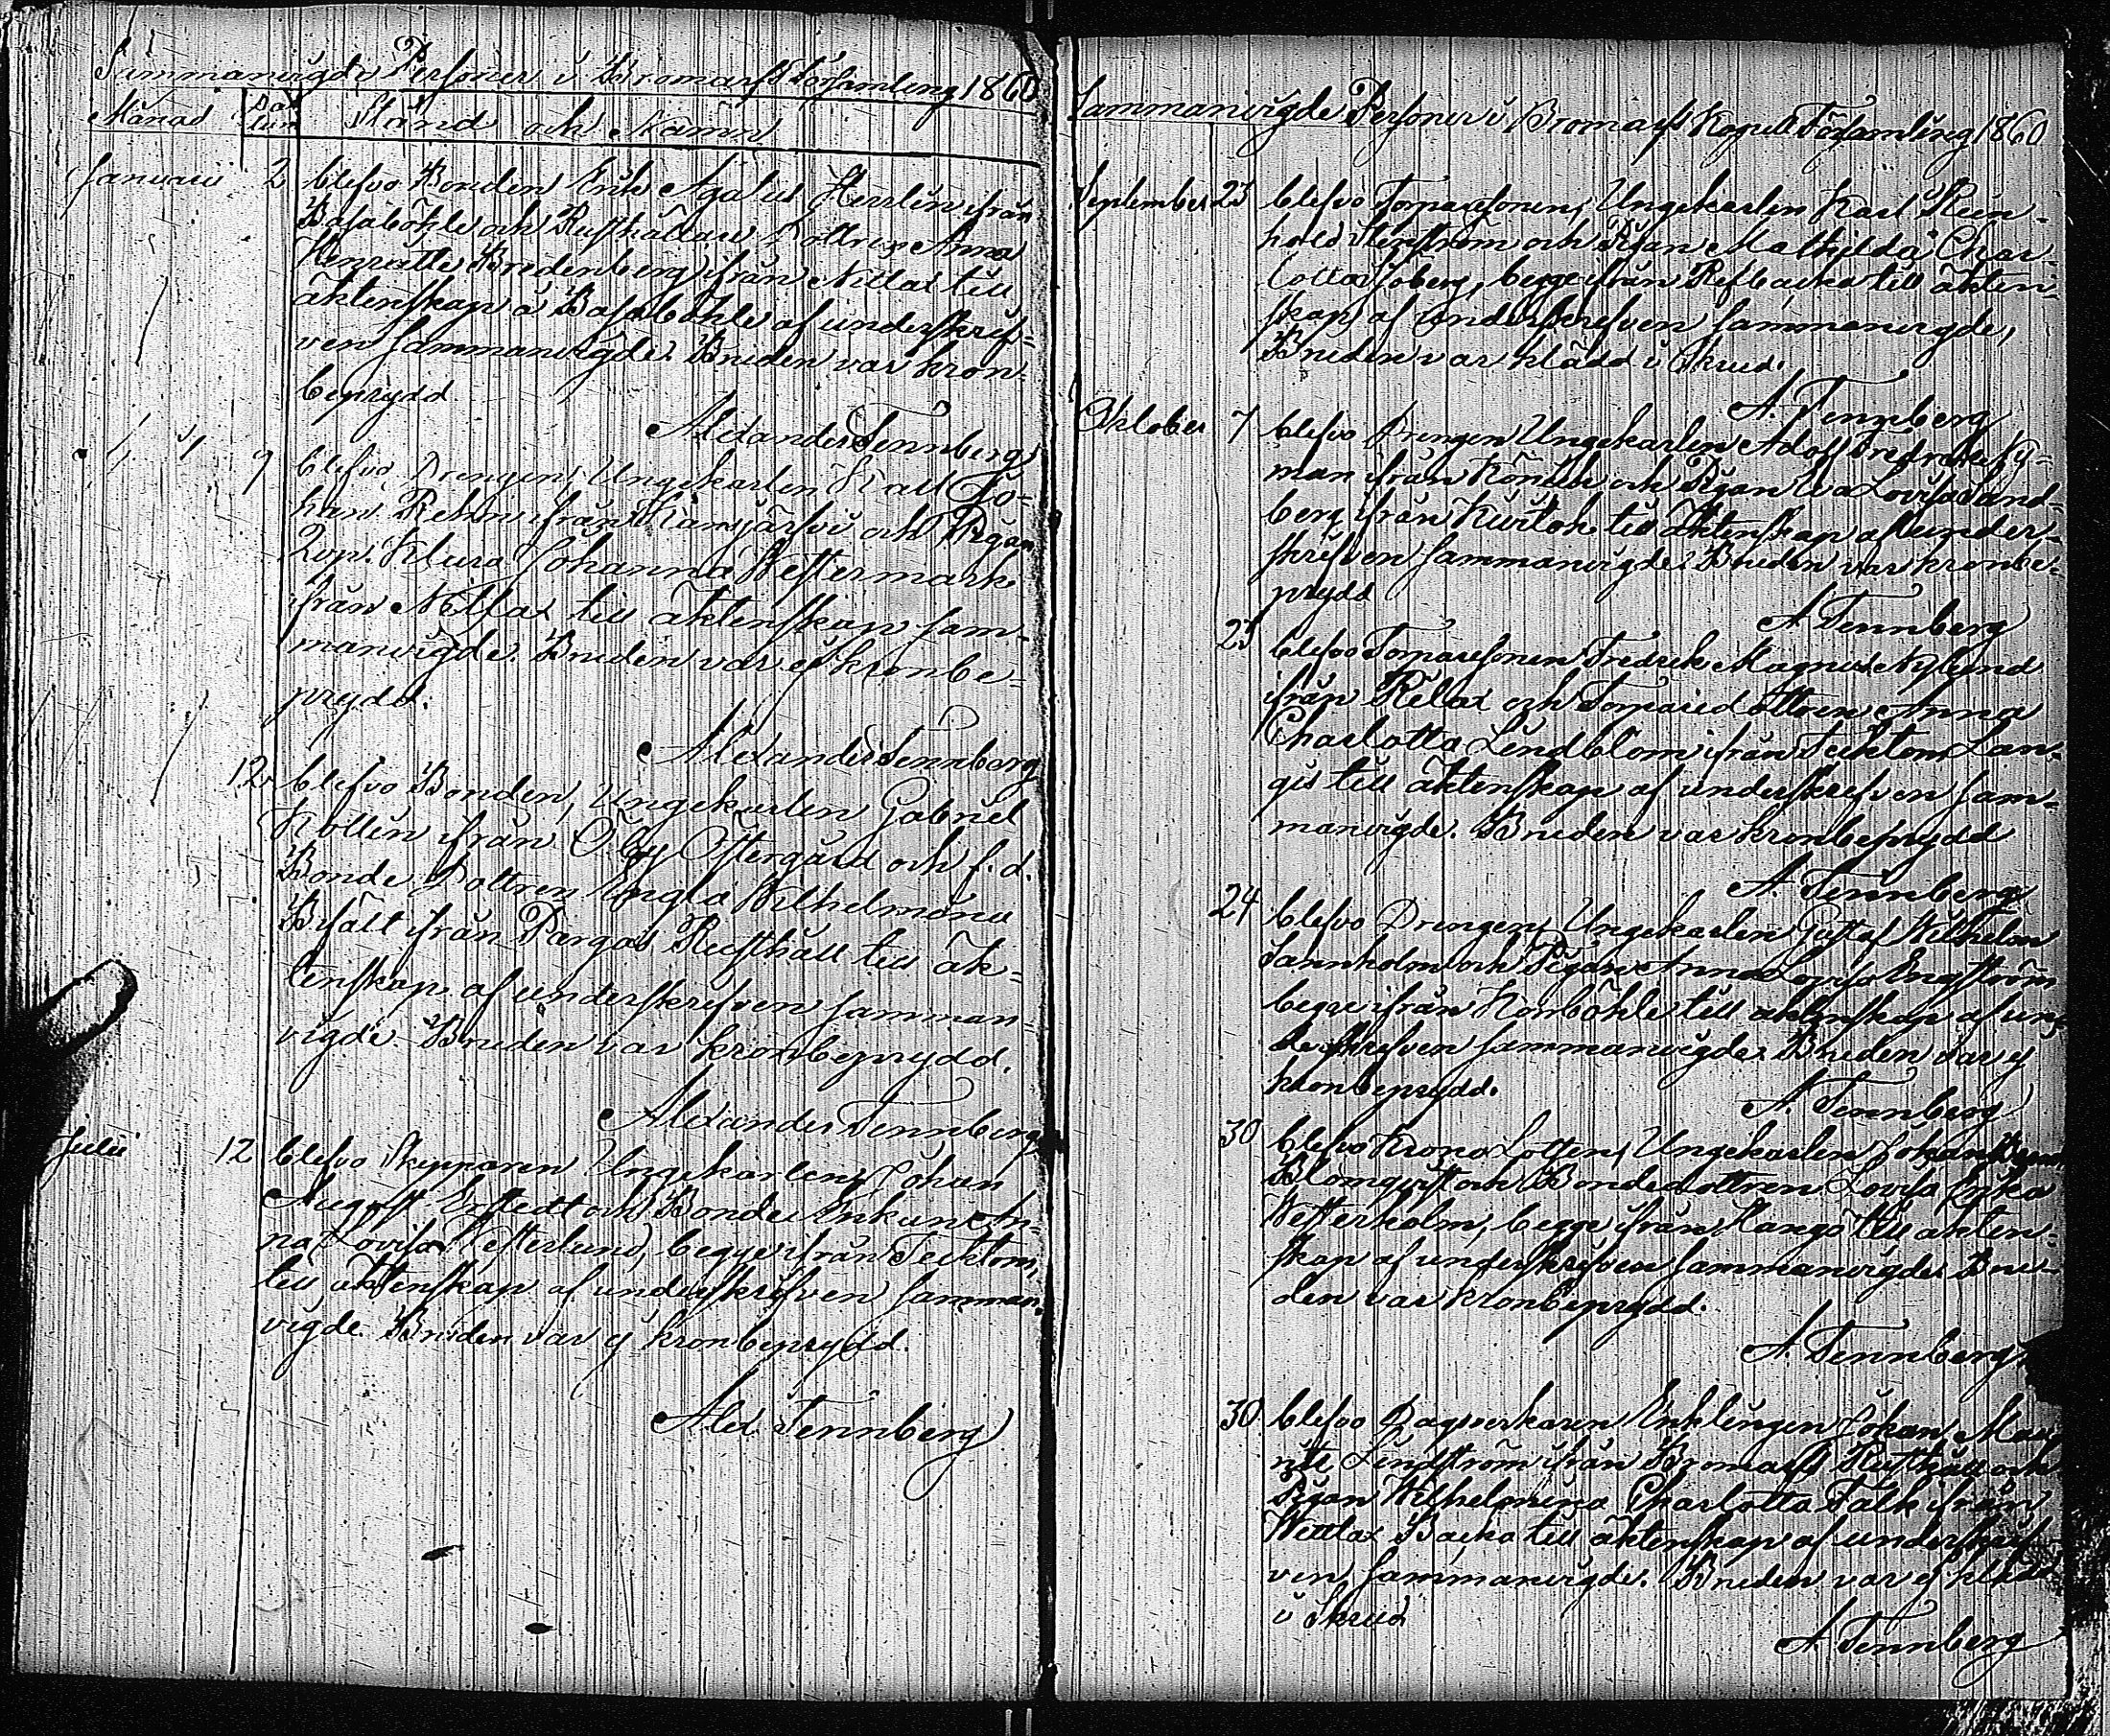 Sammanvigde Personer i Bromarf Församling 1860
Månad Datum Stånd och Namn
Januari 2 blefvo Bonden Erik Agatus Herrlin ifrån
Basaböhle och Rusthållare Dottren Anna
Henriette Bredenberg ifrån Nitlax till
äktenskap å Basaböhle af underskrif-
ven sammanvigde. Bruden var kron-
beprydd.
Alexander Tennberg
" " 9 blefvo Drengen, Ungekarlen Karl Jo-
han Rehn ifrån och Pigan
Klara Johanna Westermark
ifrån Nitlax till äktenskap sam-
manvigde. Bruden var ej kronbe-
prydd.
Alexander Tennberg
12 blefvo Bonden, Ungekarlen Gabriel
Kollin ifrån Öby Östergård och f.d.
Bonde Dottren Engla Wilhelmina
ifrån Pargas Rusthåll till äk-
tenskap af underskrefven samman-
vigde Bruden var kronbeprydd.
Alexander Tennberg
Julii 12 blefvo Skepparen Ungekarlen Johan
August och Bonde Enkan An-
na Lovisa Westerlund, begge ifrån Tecktom,
till äktenskap af underskrifven samman-
vigde. Bruden var ej kronbeprydd.
Alex Tennberg
Sammanvigde Personer i Bromarf Kapell Församling 1860
September 23 blefvo Torparesonen, Ungekarlen Karl Rein-
hold Stenström och Pigan Mathilda Char-
lotta Sjöberg, begge ifrån Refbacka till äkten-
skap af underskrefven sammanvigde,
Bruden var klädd i Skrud.
A. Tennberg
Oktober 7 blefvo Drengen Ungekarlen Adolf Fredrik Ny-
man ifrån och Pigan Eva Lovisa Sand-
berg ifrån till Äktenskap af under-
skrifven sammanvigde. Bruden var kronbe-
prydd
A Tennberg
23 blefvo Torparesonen Fredrik Magnus Nylund
ifrån Rilax och Torparedottren Anna
Charlotta Lindblom ifrån Tecktom Lan-
gis till äktenskap af underskrefven sam-
manvigde. Bruden var kronbeprydd
A. Tennberg
24 blefvo Drengen, Ungekarlen Gustaf Wilhelm
Sannholm och Pigan Anna Lovisa Engström
begge ifrån Korsböhle till äktenskap af un-
derskrefven sammanvigde. Bruden var ej
kronbeprydd.
A. Tennberg
30 blefvo Krono Lotsen, Ungekarlen Johan
Blomqvist och Bondedottren Lovisa Erika
Westerholm, begge ifrån Hangö till äkten-
skap af underskrifven sammanvigde. Bru-
den var kronbeprydd.
A. Tennberg
30 blefvo Dagsverkaren Enklingen Johan Mau-
ritz Lindström ifrån Bromarf Rusthåll och
Pigan Wilhelmina Charlotta Falk ifrån
Wettlax Backa till äktenskap af underskrif
ven sammanvigde. Bruden var ej klädd
i Skrud
A. Tennberg